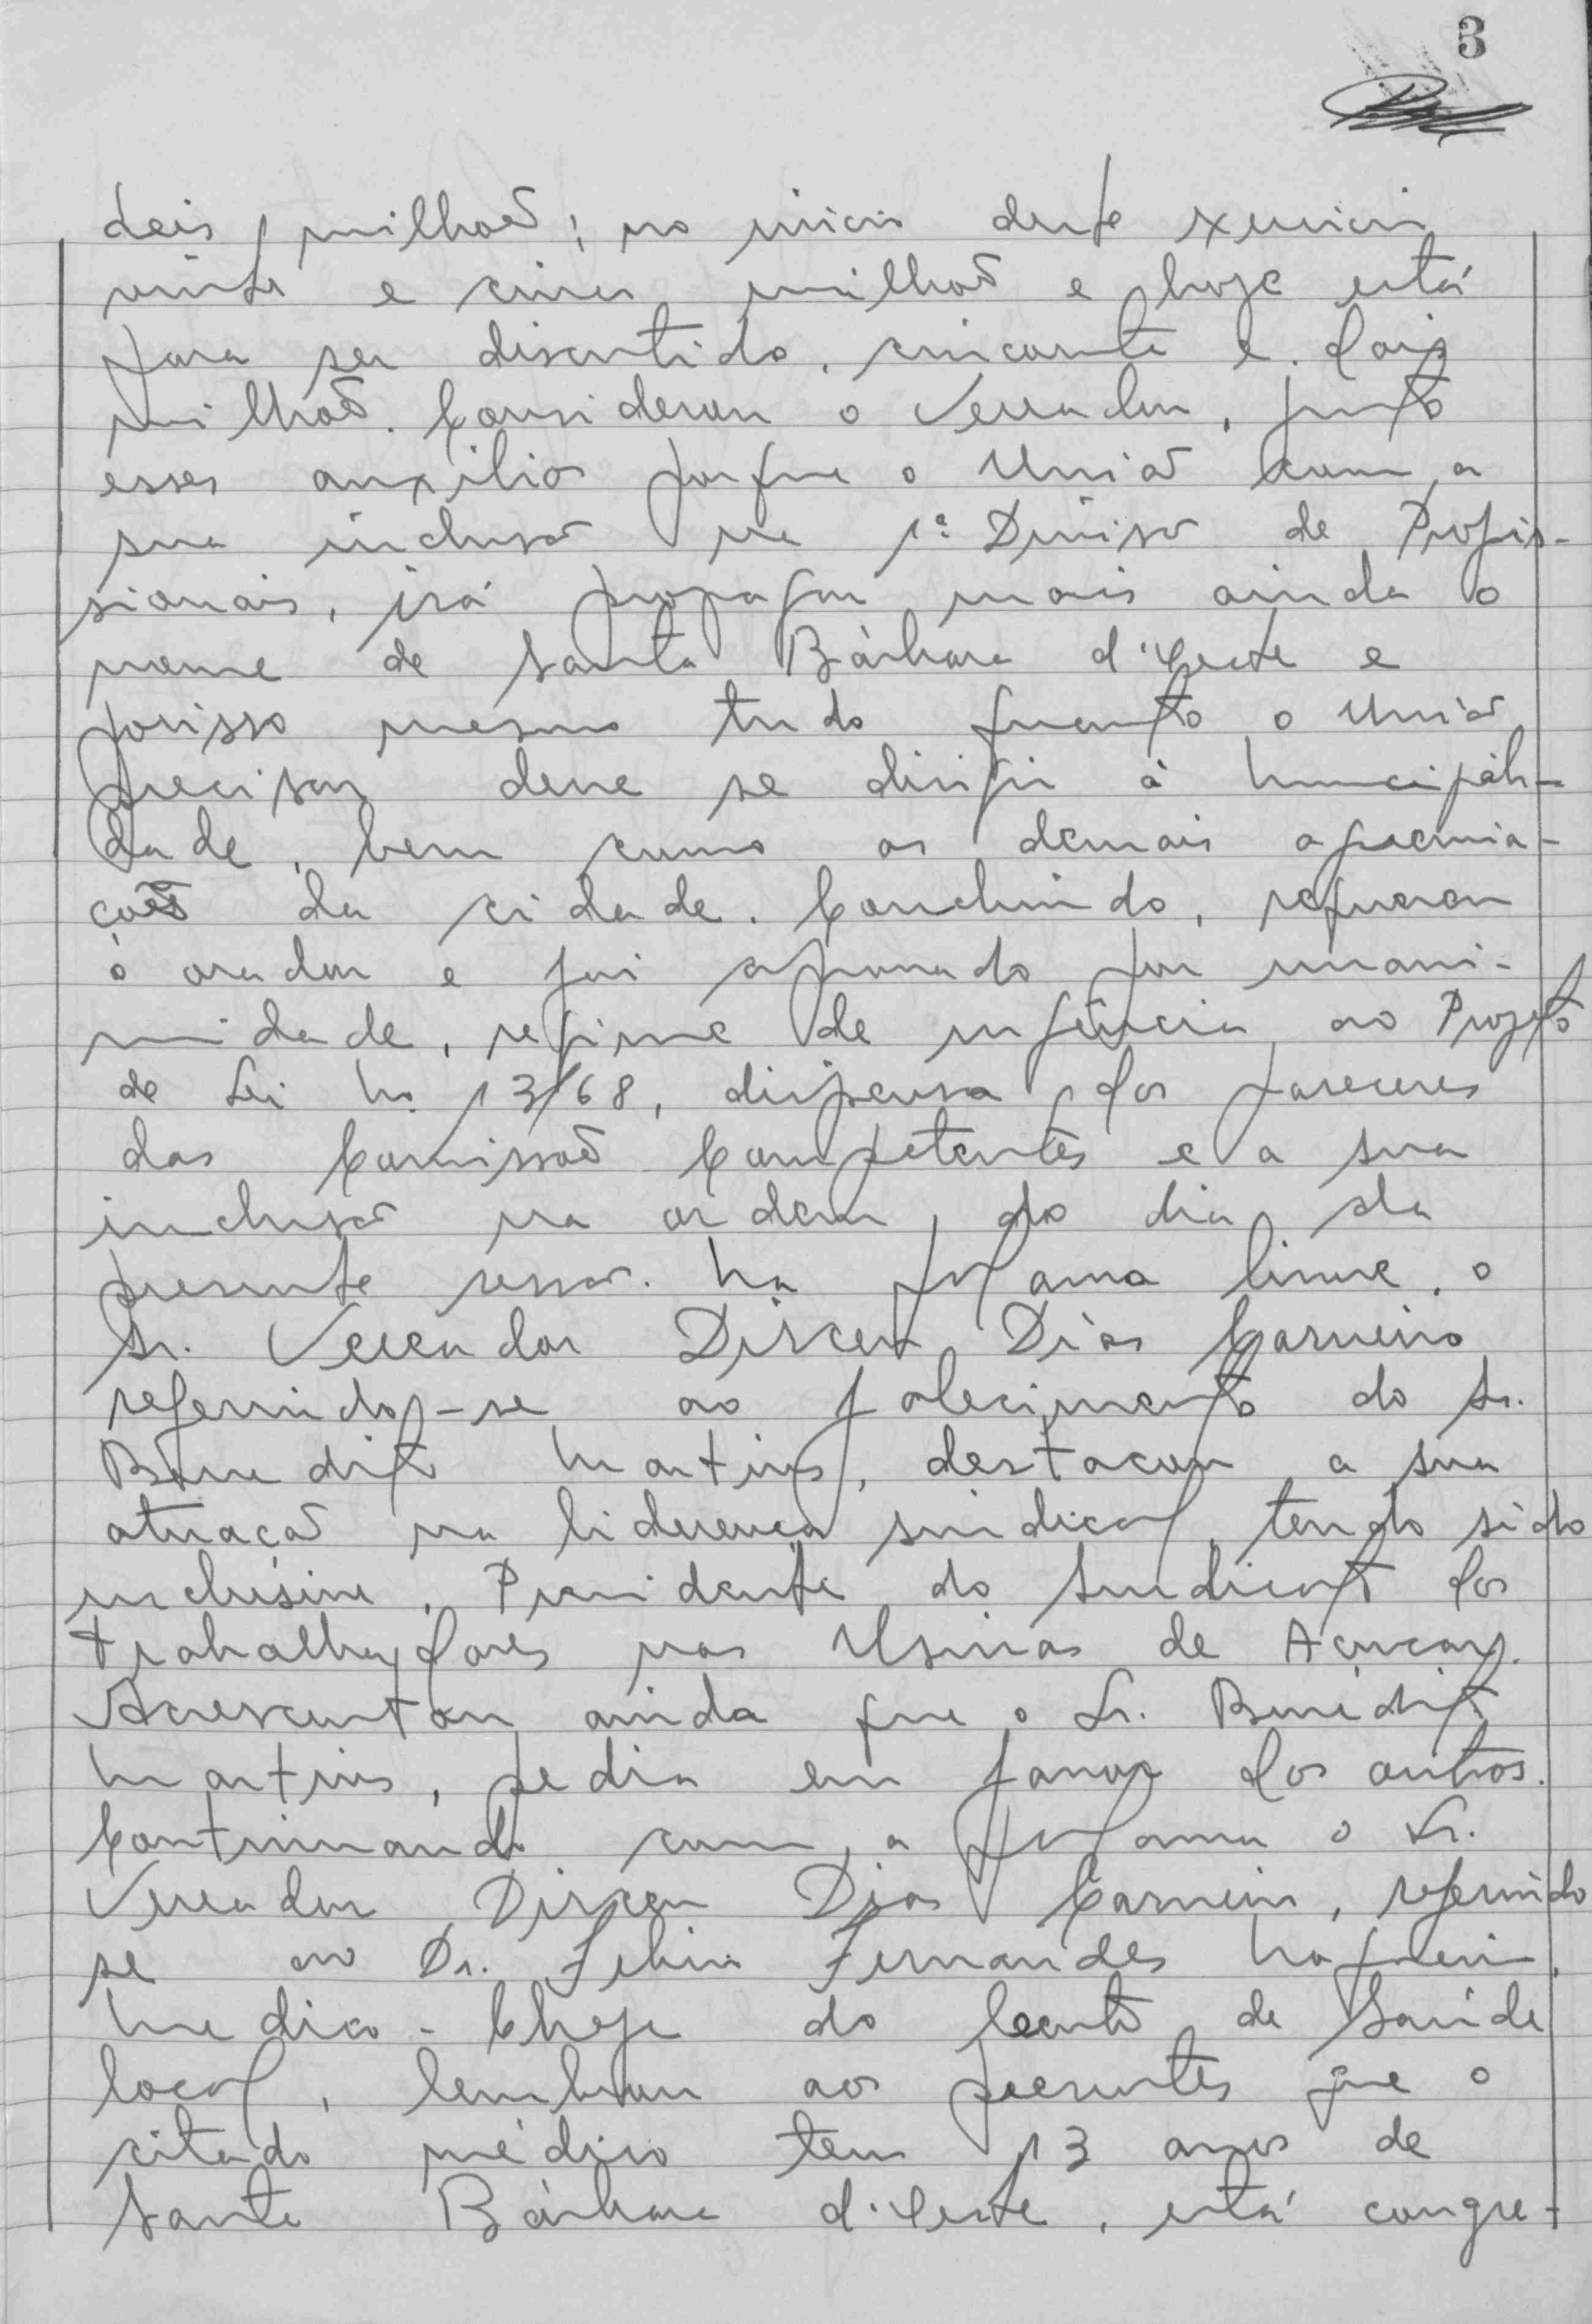 3
deis milhoẽs; no inicio deste exercicio
vinte e cinco milhoẽs e hoje está
para ser discutido, cincoenta e dois
milhoẽs. Considerou o Vereador, justo
esses auxilios porque o União com a
sua inclusão na 1ª Divisão de Profis-
sionais, irá propagar mais ainda o
nome de Santa Bárbara d'Oeste e
porisso mesmo tudo quanto o União
precisar deve se dirigir à Municipali-
dade, bem como as demais agremia-
coẽs da cidade. Concluindo, requereu
o orador e foi aprovado por unani-
midade, regime de urgência ao Projeto
de Lei No. 13/68, dispensa dos pareceres
das Comissoẽs Competentes e a sua
inclusão na ordem do dia da
presente sessão. Na palavra livre, o
Sr. Vereador Dirceu Dias Carneiro
referindo-se ao falecimento do Sr.
Benedito Martins, destacou a sua
atuacão na liderença sindical, tendo sido
inclusive, Presidente do Sindicato dos
trabalhadores nas Usinas de Açucar.
Acrescentou ainda que o Sr. Benedito
Martins, pedia em favor dos outros.
Continuando com a palavra o Sr.
Vereador Dirceu Dias Carneiro, referindo
se ao Dr. Felinio Fernandes Nogueira,
Medico-Chefe do Centro de Saúde
local, lembrou aos presentes que o
citado médico tem 13 anos de
Santa Bárbara d'Oeste, está congre-